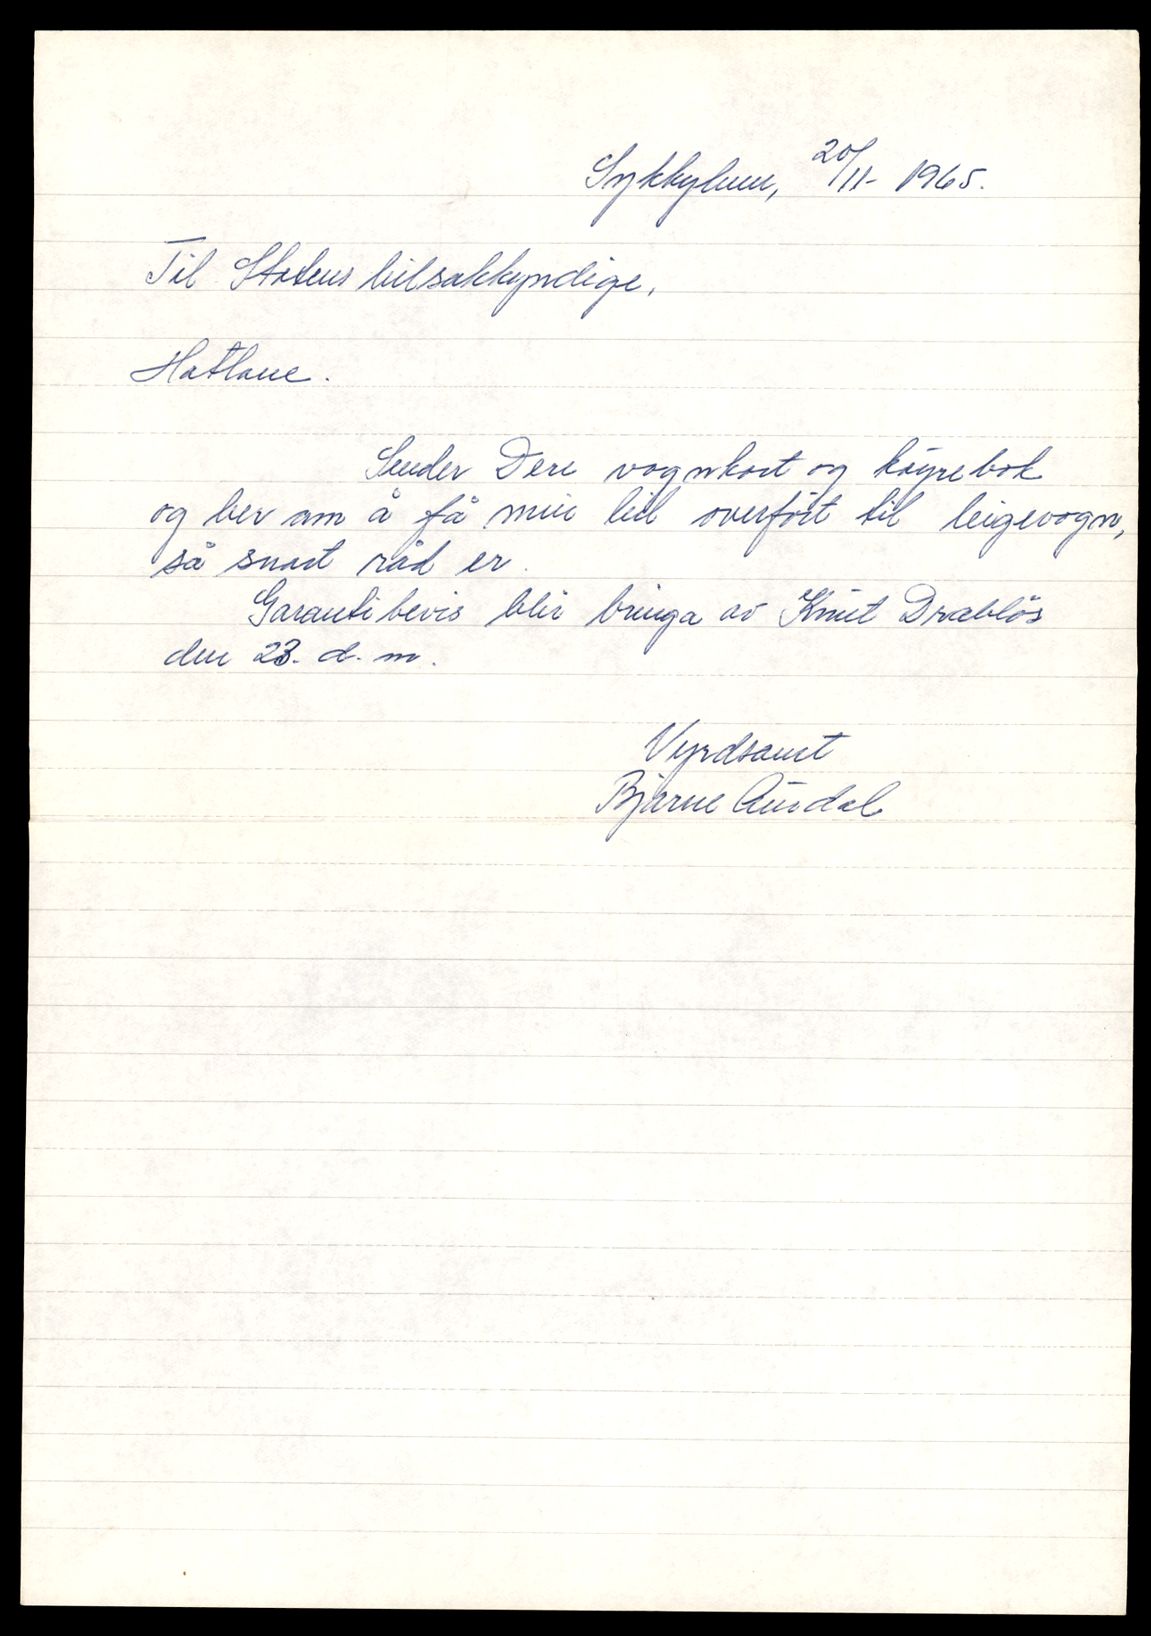 Sykkylven, 20/11- 1965.
Til Statens bilsakkyndige,
Hatlane.
Sender Dere vognkort og köyrebok
og ber om å få min bil overfört til leigevogn,
så snart råd er.
Garantibevis blir bringa av Knut Drabløs
den 23. d. m.
Vyrdsamt
Bjarne Aurdal